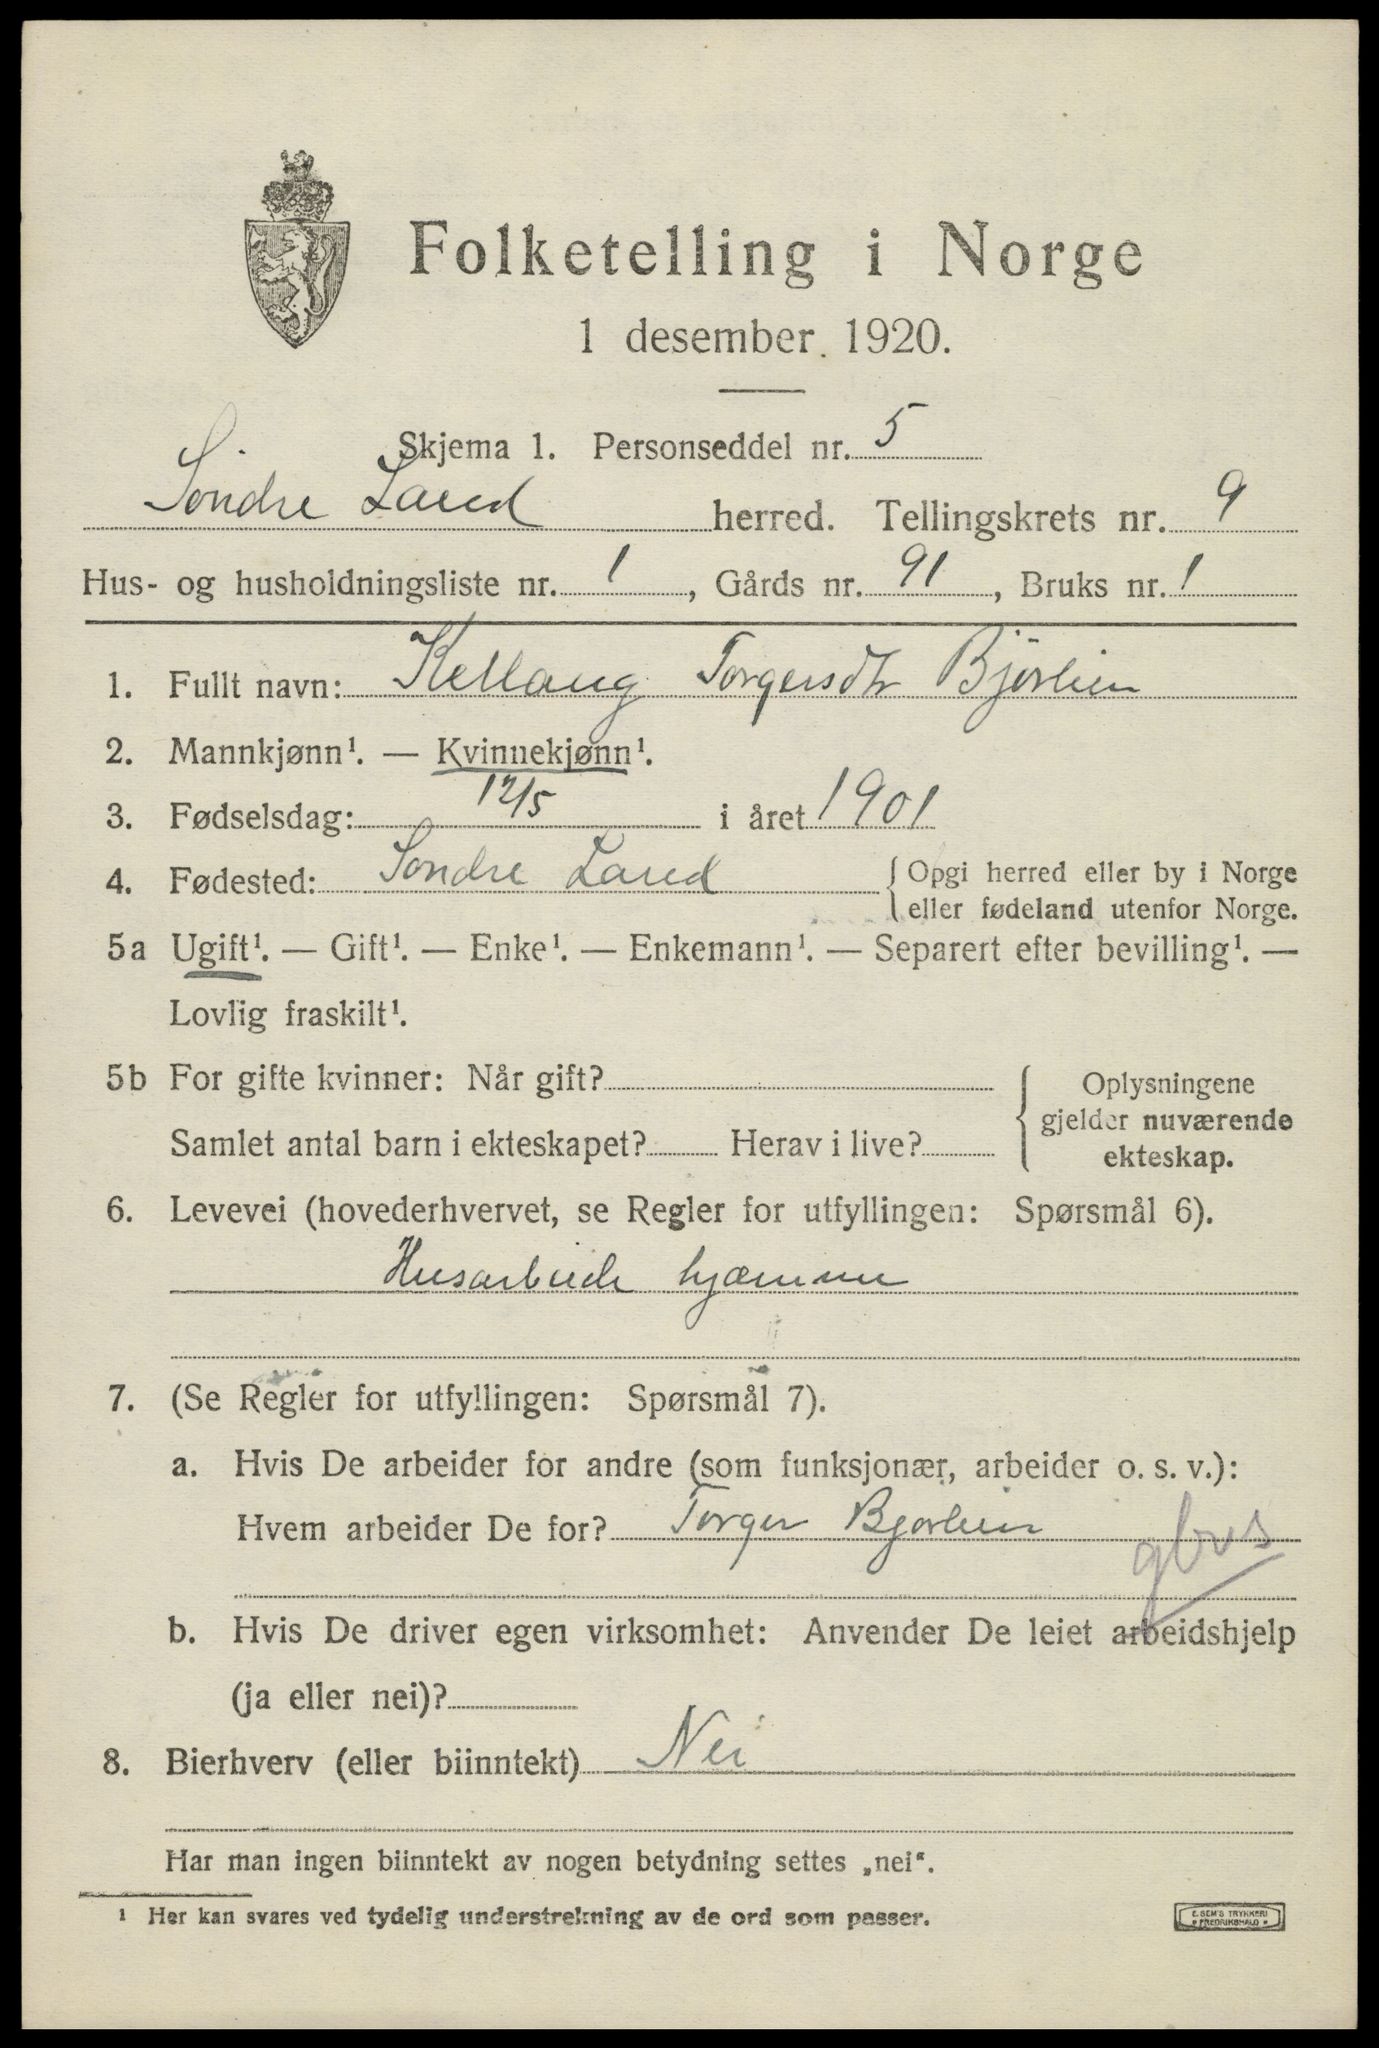 Folketelling i Norge
1 desember 1920.
Skjema 1. Personseddel nr. 5
Söndre Land herred. Tellingskrets nr. 9
Hus- og husholdningsliste nr. 1, Gårds nr. 91, Bruks nr. 1
1. Fullt navn: Kellaug Torgersdtr Bjørlien
2. Mannkjønn¹. — Kvinnekjønn¹.
3. Fødselsdag: 12/5 i året 1901
4. Fødested: Söndre Land {Opgi herred eller by i Norge
eller fødeland utenfor Norge.
5a Ugift¹. — Gift¹. — Enke¹. — Enkemann¹. — Separert efter bevilling¹. —
Lovlig fraskilt¹.
5b For gifte kvinner: Når gift?
Samlet antal barn i ekteskapet? Herav i live?
{Oplysningene
gjelder nuværende
ekteskap.
6. Levevei (hovederhvervet, se Regler for utfyllingen: Spørsmål 6).
Husarbeide hjemme
7. (Se Regler for utfyllingen: Spørsmål 7).
a. Hvis De arbeider for andre (som funksjonær, arbeider o. s. v.):
Hvem arbeider De for? Torger Bjørlien
gbrs
b. Hvis De driver egen virksomhet: Anvender De leiet arbeidshjelp
(ja eller nei)?
8. Bierhverv (eller biinntekt) Nei
Har man ingen biinntekt av nogen betydning settes „nei“.
¹ Her kan svares ved tydelig understrekning av de ord som passer.
E. SEM'S TRYKKERI
FREDRIKSHALD